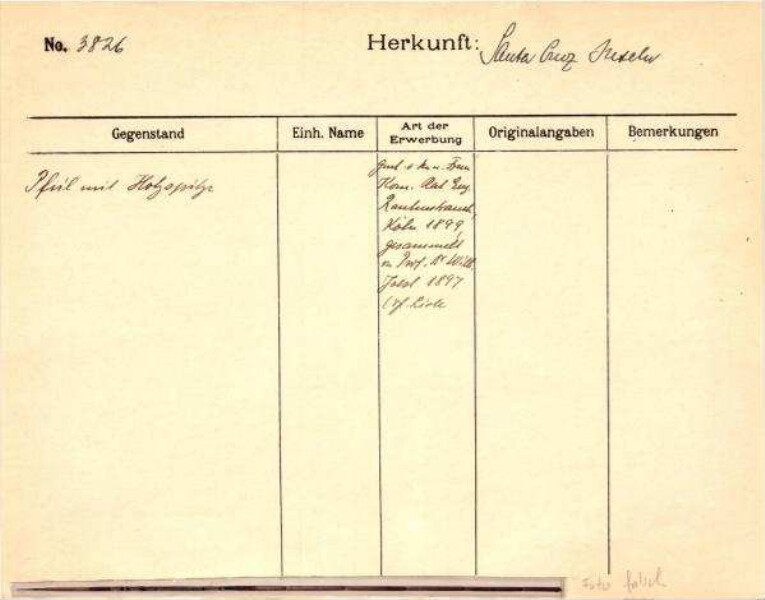 No. 3826
Herkunft: Santa Cruz Inseln
Gegenstand
Einh. Name
Art der Erwerbung
Originalangaben
Bemerkungen
Pfeil mit Holzspitze
Frau
Kom. Rat Eug.
Rautenstrauch,
Köln 1899,
gesammelt
v. Prof. Dr. Wilh.
Joest 1897
Foto falsch